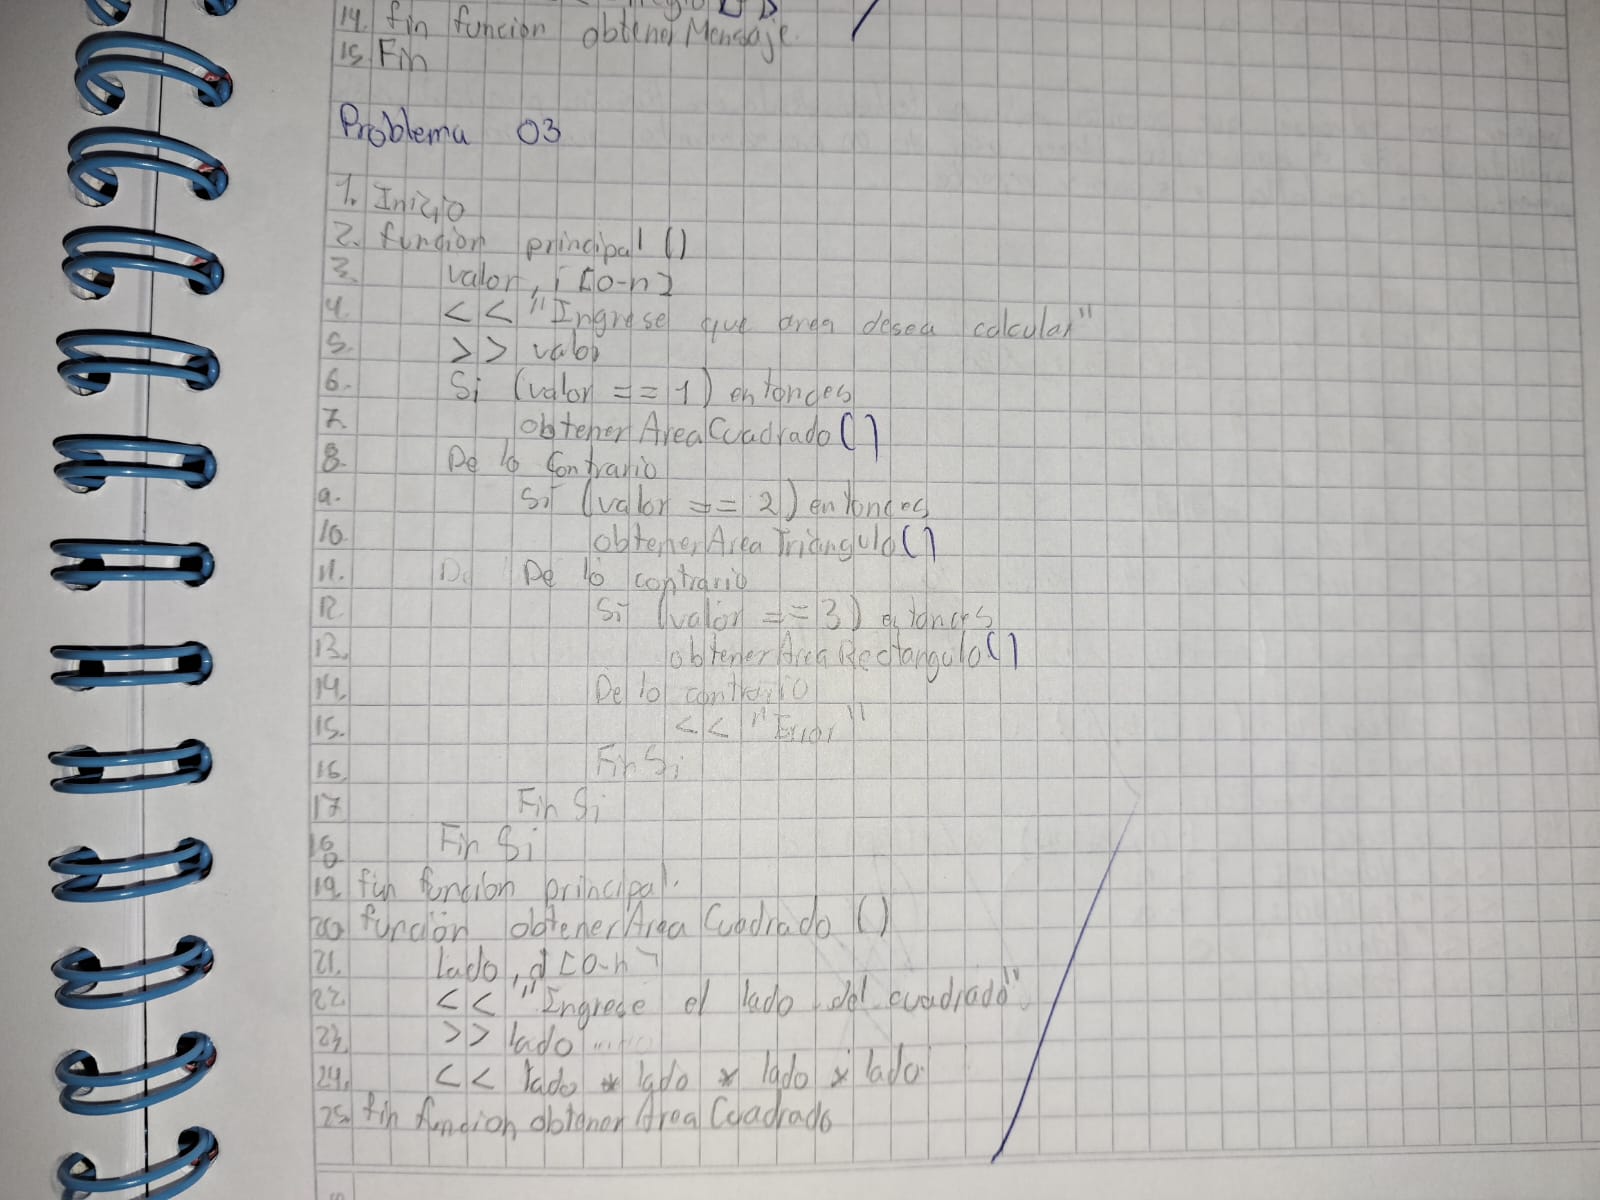 14. fin funcion obtenerMensaje.
15. Fin
Problema 03
1. Inicio
2. funcion principal ()
3. valor, i [0-n]
4. << "Ingrese que area desea calcular"
5. >> valor
6. Si (valor == 1) entonces
7. obtenerAreaCuadrado()
8. De lo contrario
9. Si (valor == 2) entonces
10. obtenerAreaTriangulo()
11. De lo contrario
12. Si (valor == 3) entonces
13. obtenerAreaRectangulo()
14. De lo contrario
15. << "Error"
16. Fin Si
17. Fin Si
18. Fin Si
19. fin funcion principal.
20. función obtenerArea Cuadrado ()
21. lado, [0-n]
22. << "Ingrese el lado del cuadrado"
23. >> lado
24. << lado * lado * lado * lado
25. fin funcion obtener Area Cuadrado